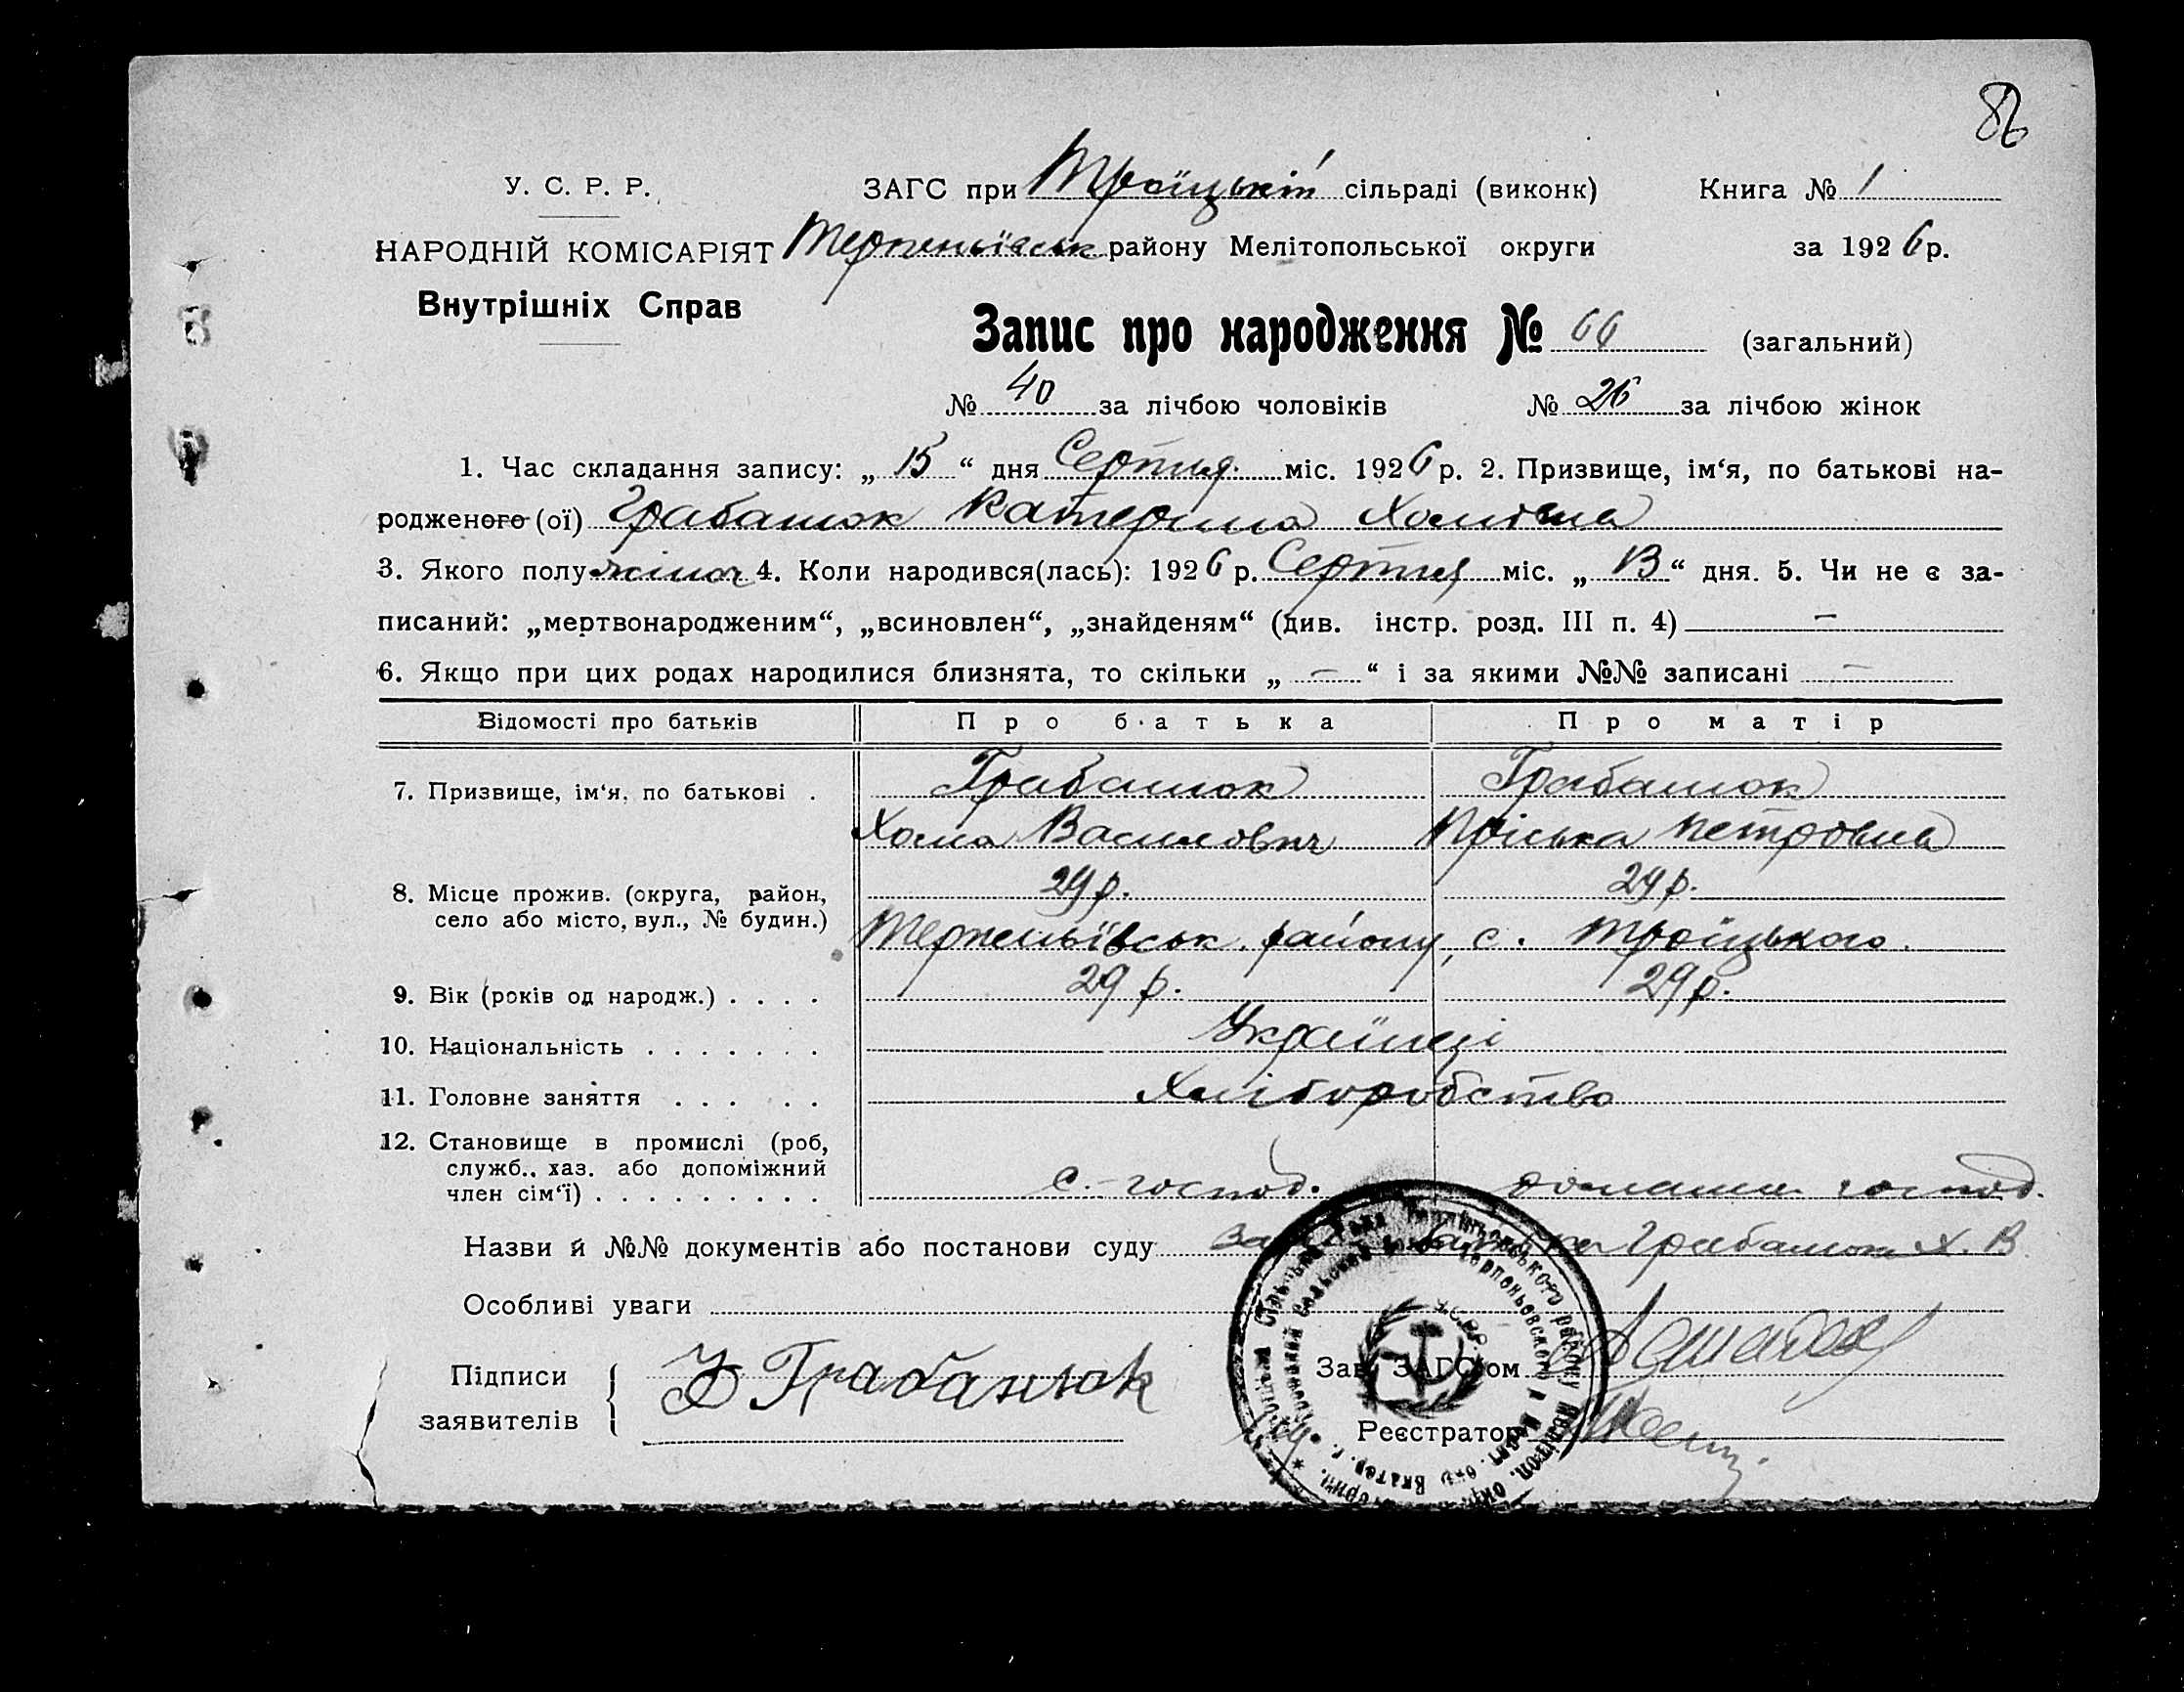 86
У. С. Р. Р. ЗАГС при Троїцькій сільраді (виконк) Книга № 1
НАРОДНІЙ КОМІСАРІЯТ Терпеньївськ району Мелітопольської округи за 1926 р.
Внутрішніх Справ
Запис про народження № 66 (загальний)
№ 40 за лічбою чоловіків № 26 за лічбою жінок
1. Час складання запису: „ 15 “ дня Серпня міс. 1926 р. 2. Призвище, ім‘я, по батькові на-
родженого (ої) Грабанюк Катерина Хомівна
3. Якого полу жіноч 4. Коли народився(лась): 1926 р. Серпня міс. „ 13 “ дня. 5. Чи не є за-
писаний: „мертвонародженим“, „всиновлен“, „знайденям“ (див. інстр. розд. III п. 4) —
6. Якщо при цих родах народилися близнята, то скільки „ — “ і за якими №№ записані —
Відомості про батьків Про батька Про матір
7. Призвище, ім‘я, по батькові . Грабанюк Грабанюк
Хома Василович Пріська Петровна
29 р. 29 р.
8. Місце прожив. (округа, район,
село або місто, вул., № будин.) Терпеньївськ. району, с. Троїцького.
9. Вік (років од народж.) . . . . 29 р. 29 р.
10. Національність . . . . . . . Українці
11. Головне заняття . . . . . Хліборобство
12. Становище в промислі (роб,
служб., хаз. або допоміжний
член сім‘ї) . . . . . . . . . с.-господ. домашн. господ.
Назви й №№ документів або постанови суду батька Грабанюк Х. В.
Особливі уваги
Підписи
заявителів Грабанюк
Зав. ЗАГС‘ом
Реєстратор
У.С.Р.Р.